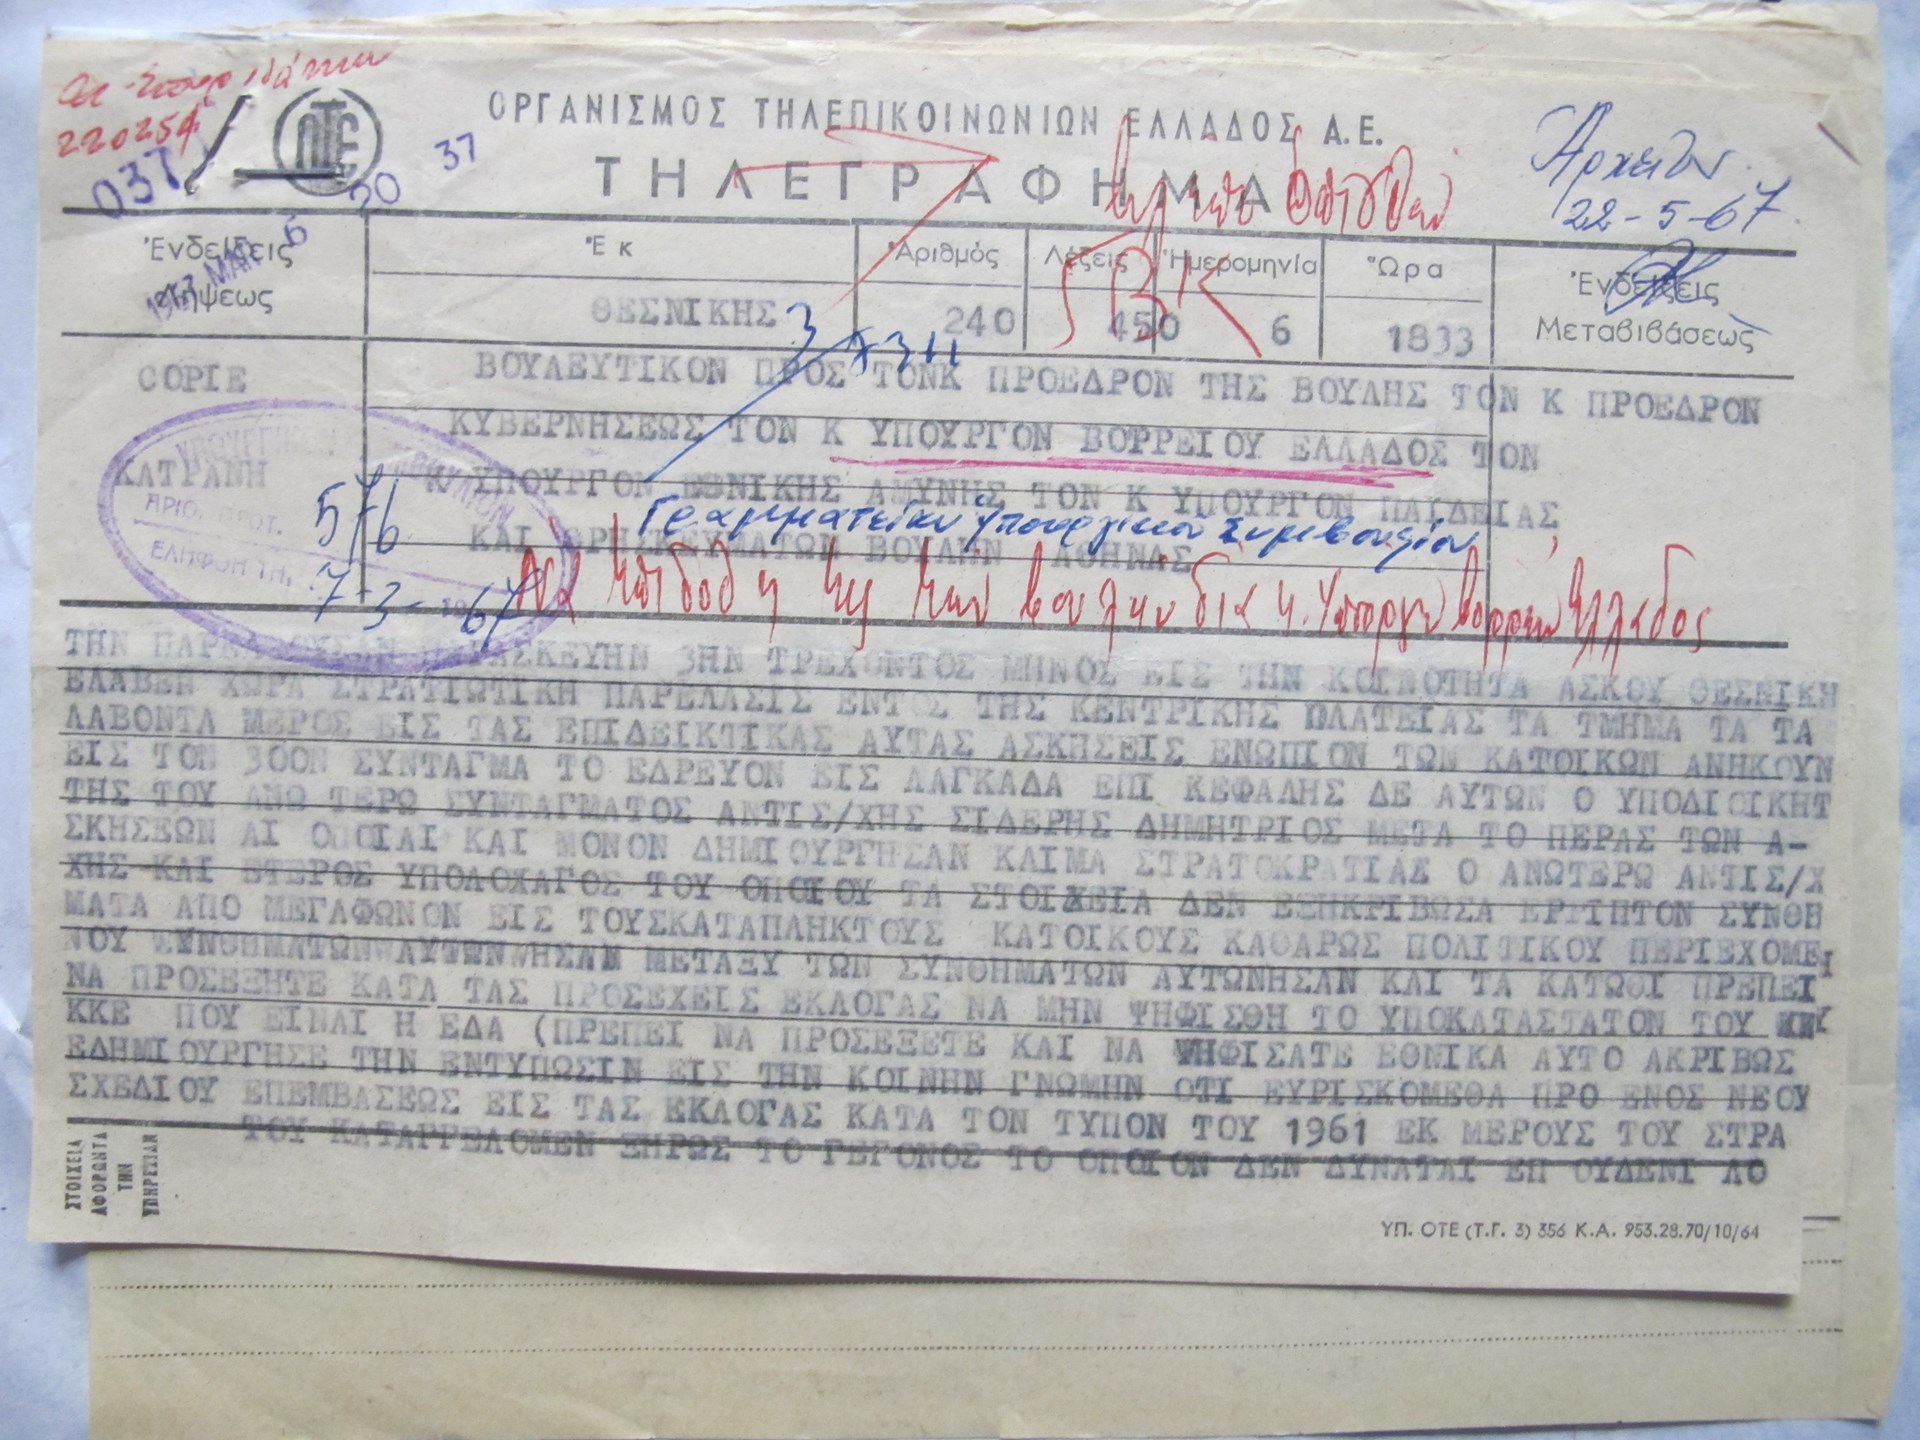 220254
037
ΟΤΕ
20 37
ΟΡΓΑΝΙΣΜΟΣ ΤΗΛΕΠΙΚΟΙΝΩΝΙΩΝ ΕΛΛΑΔΟΣ Α.Ε.
ΤΗΛΕΓΡΑΦΗΜΑ
Ἀρχεῖον
22-5-67
Ἐνδείξεις Λήψεως
1967 ΜΑΡ 6
Ἐκ
Ἀριθμός
Λέξεις
Ἡμερομηνία
Ὥρα
Ἐνδείξεις Μεταβιβάσεως
ΘΕΣΝΙΚΗΣ 240 450 6 1833
ΒΚ
COPIE
ΚΑΤΡΑΝΗ
ΒΟΥΛΕΥΤΙΚΟΝ ΠΡΟΣ ΤΟΝΚ ΠΡΟΕΔΡΟΝ ΤΗΣ ΒΟΥΛΗΣ ΤΟΝ Κ ΠΡΟΕΔΡΟΝ
ΚΥΒΕΡΝΗΣΕΩΣ ΤΟΝ Κ ΥΠΟΥΡΓΟΝ ΒΟΡΡΕΙΟΥ ΕΛΛΑΔΟΣ ΤΟΝ
Κ ΥΠΟΥΡΓΟΝ ΕΘΝΙΚΗΣ ΑΜΥΝΗΣ ΤΟΝ Κ ΥΠΟΥΡΓΟΝ ΠΑΙΔΕΙΑΣ
Γραμματείαν Ὑπουργικοῦ Συμβουλίου
ΚΑΙ ΘΡΗΣΚΕΥΜΑΤΩΝ ΒΟΥΛΗΝ ΑΘΗΝΑΣ
ΑΡΙΘ. ΠΡΟΤ. 576
ΕΛΗΦΘΗ ΤΗ, 7-3-1967
Νὰ ἐπιδοθῆ εἰς τὴν Βουλὴν διὰ κ. Ὑπουργὸν Βορρείου Ἑλλάδος
ΤΗΝ ΠΑΡΕΛΘΟΥΣΑΝ ΠΑΡΑΣΚΕΥΗΝ 3ΗΝ ΤΡΕΧΟΝΤΟΣ ΜΗΝΟΣ ΕΙΣ ΤΗΝ ΚΟΙΝΟΤΗΤΑ ΑΣΚΟΥ ΘΕΣΝΙΚΗ
ΕΛΑΒΕΝ ΧΩΡΑ ΣΤΡΑΤΙΩΤΙΚΗ ΠΑΡΕΛΑΣΙΣ ΕΝΤΟΣ ΤΗΣ ΚΕΝΤΡΙΚΗΣ ΠΛΑΤΕΙΑΣ ΤΑ ΤΜΗΜΑ ΤΑ ΤΑ
ΛΑΒΟΝΤΑ ΜΕΡΟΣ ΕΙΣ ΤΑΣ ΕΠΙΔΕΙΚΤΙΚΑΣ ΑΥΤΑΣ ΑΣΚΗΣΕΙΣ ΕΝΩΠΙΟΝ ΤΩΝ ΚΑΤΟΙΚΩΝ ΑΝΗΚΟΥΝ
ΕΙΣ ΤΟΝ 300Ν ΣΥΝΤΑΓΜΑ ΤΟ ΕΔΡΕΥΟΝ ΕΙΣ ΛΑΓΚΑΔΑ ΕΠΙ ΚΕΦΑΛΗΣ ΔΕ ΑΥΤΩΝ Ο ΥΠΟΔΙΟΙΚΗΤ
ΤΗΣ ΤΟΥ ΑΝΩ ΤΕΡΩ ΣΥΝΤΑΓΜΑΤΟΣ ΑΝΤΙΣ/ΧΗΣ ΣΙΔΕΡΗΣ ΔΗΜΗΤΡΙΟΣ ΜΕΤΑ ΤΟ ΠΕΡΑΣ ΤΩΝ Α-
ΣΚΗΣΕΩΝ ΑΙ ΟΠΟΙΑΙ ΚΑΙ ΜΟΝΟΝ ΔΗΜΙΟΥΡΓΗΣΑΝ ΚΛΙΜΑ ΣΤΡΑΤΟΚΡΑΤΙΑΣ Ο ΑΝΩΤΕΡΩ ΑΝΤΙΣ/Χ
ΧΗΣ ΚΑΙ ΕΤΕΡΟΣ ΥΠΟΛΟΧΑΓΟΣ ΤΟΥ ΟΠΟΙΟΥ ΤΑ ΣΤΟΙΧΕΙΑ ΔΕΝ ΕΞΗΚΡΙΒΩΣΑ ΕΡΡΙΠΤΟΝ ΣΥΝΘΗ
ΜΑΤΑ ΑΠΟ ΜΕΓΑΦΩΝΟΝ ΕΙΣ ΤΟΥΣΚΑΤΑΠΛΗΚΤΟΥΣ ΚΑΤΟΙΚΟΥΣ ΚΑΘΑΡΩΣ ΠΟΛΙΤΙΚΟΥ ΠΕΡΙΕΧΟΜΕ
ΝΟΥ ΜΕΤΑΞΥ ΤΩΝ ΣΥΝΘΗΜΑΤΩΝ ΑΥΤΩΝΗΣΑΝ ΚΑΙ ΤΑ ΚΑΤΩΘΙ ΠΡΕΠΕΙ
ΝΑ ΠΡΟΣΕΞΗΤΕ ΚΑΤΑ ΤΑΣ ΠΡΟΣΕΧΕΙΣ ΕΚΛΟΓΑΣ ΝΑ ΜΗΝ ΨΗΦΙΣΘΗ ΤΟ ΥΠΟΚΑΤΑΣΤΑΤΟΝ ΤΟΥ
ΚΚΕ ΠΟΥ ΕΙΝΑΙ Η ΕΔΑ (ΠΡΕΠΕΙ ΝΑ ΠΡΟΣΕΞΕΤΕ ΚΑΙ ΝΑ ΨΗΦΙΣΑΤΕ ΕΘΝΙΚΑ ΑΥΤΟ ΑΚΡΙΒΩΣ
ΕΔΗΜΙΟΥΡΓΗΣΕ ΤΗΝ ΕΝΤΥΠΩΣΙΝ ΕΙΣ ΤΗΝ ΚΟΙΝΗΝ ΓΝΩΜΗΝ ΟΤΙ ΕΥΡΙΣΚΟΜΕΘΑ ΠΡΟ ΕΝΟΣ ΝΕΟΥ
ΣΧΕΔΙΟΥ ΕΠΕΜΒΑΣΕΩΣ ΕΙΣ ΤΑΣ ΕΚΛΟΓΑΣ ΚΑΤΑ ΤΟΝ ΤΥΠΟΝ ΤΟΥ 1961 ΕΚ ΜΕΡΟΥΣ ΤΟΥ ΣΤΡΑ
ΤΟΥ ΚΑΤΑΓΓΕΛΟΜΕΝ ΞΗΡΩΣ ΤΟ ΓΕΓΟΝΟΣ ΤΟ ΟΠΟΙΟΝ ΔΕΝ ΔΥΝΑΤΑΙ ΕΠ ΟΥΔΕΝΙ ΛΟ
ΣΤΟΙΧΕΙΑ
ΑΦΟΡΩΝΤΑ
ΤΗΝ
ΥΠΗΡΕΣΙΑΝ
ΥΠ. ΟΤΕ (Τ.Γ. 3) 356 Κ.Α. 953.28.70/10/64